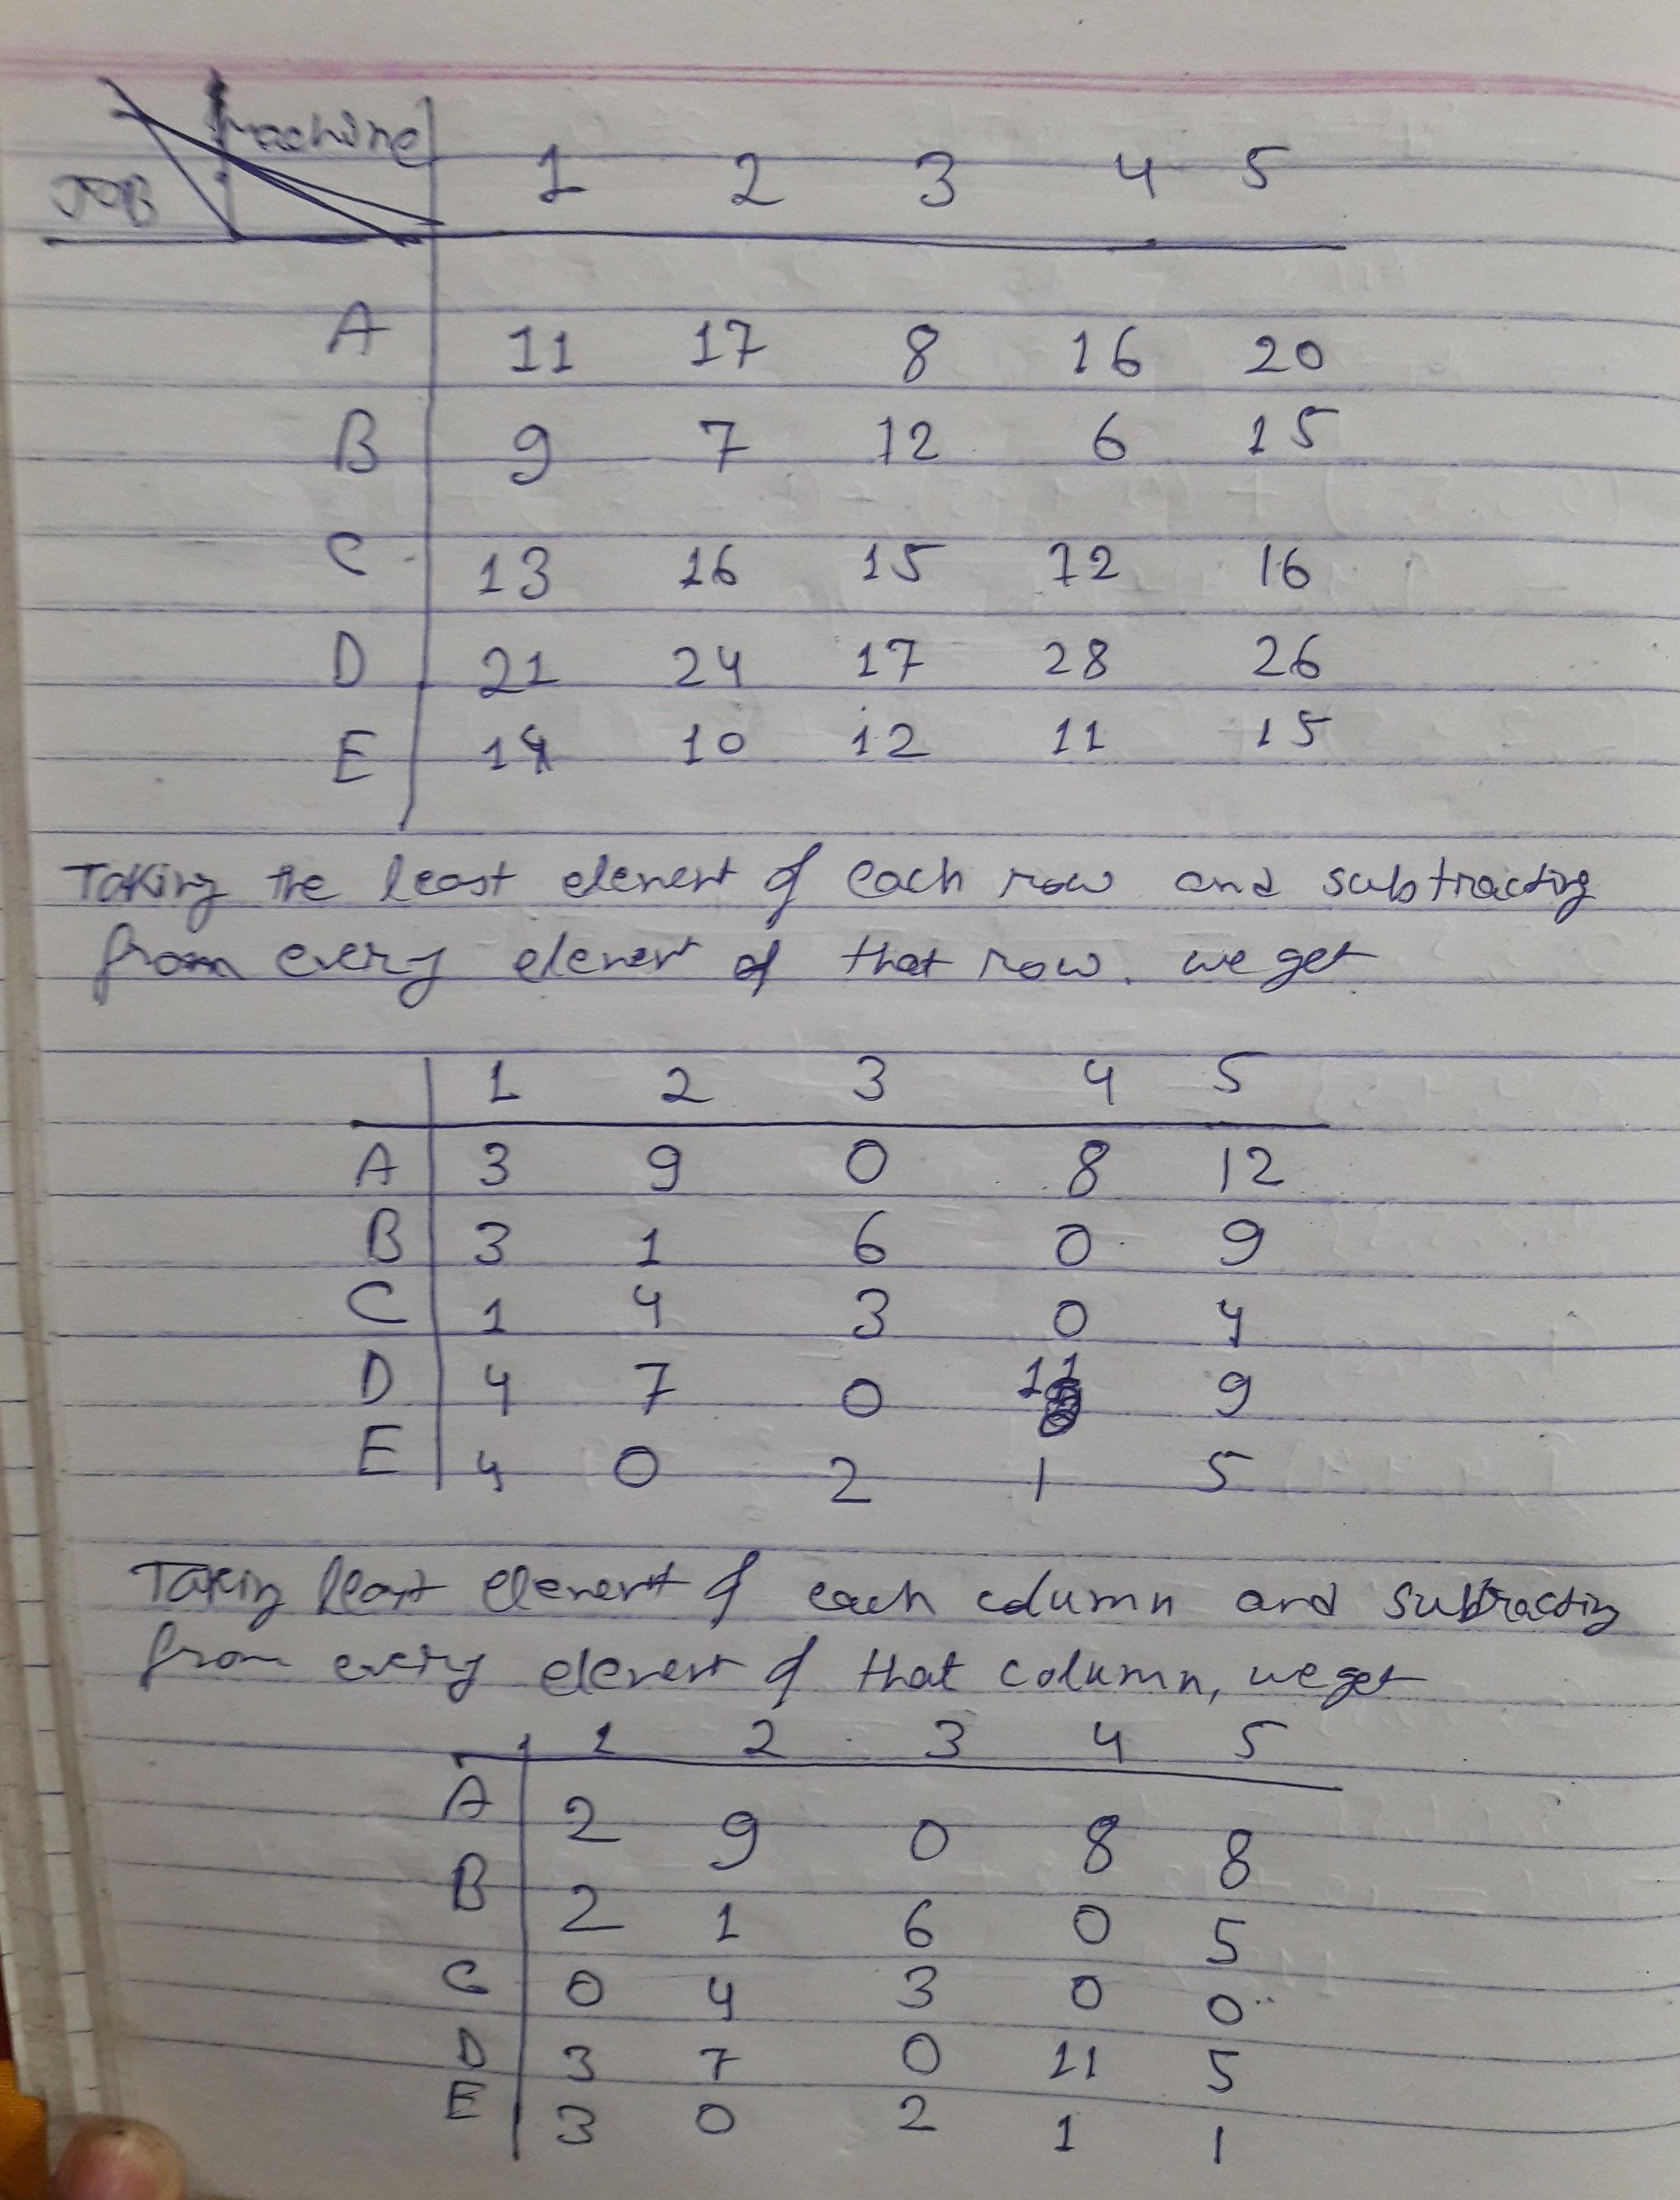 Machine
JOB 1 2 3 4 5
A 11 17 8 16 20
B 9 7 12 6 15
C 13 16 15 12 16
D 21 24 17 28 26
E 14 10 12 11 15
Taking the least element of each row and subtracting
from every element of that row. we get
1 2 3 4 5
A 3 9 0 8 12
B 3 1 6 0 9
C 1 4 3 0 4
D 4 7 0 11 9
E 4 0 2 1 5
Taking least element of each column and subtracting
from every element of that column, we get
1 2 3 4 5
A 2 9 0 8 8
B 2 1 6 0 5
C 0 4 3 0 0
D 3 7 0 11 5
E 3 0 2 1 1